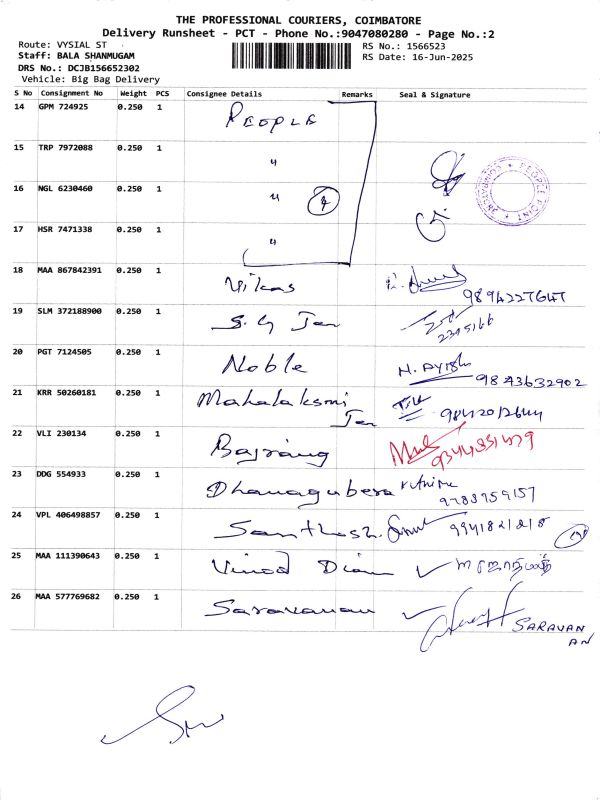 THE PROFESSIONAL COURIERS, COIMBATORE
Delivery Runsheet - PCT - Phone No.:9047080280 - Page No.:2
Route: VYSIAL ST RS No.: 1566523
Staff: BALA SHANMUGAM RS Date: 16-Jun-2025
DRS No.: DCJB156652302
Vehicle: Big Bag Delivery
S No Consignment No Weight PCS Consignee Details Remarks Seal & Signature
14 GPM 724925 0.250 1 PEOPLE
15 TRP 7972088 0.250 1 "
PEOPLE POINT * COIMBATORE *
16 NGL 6230460 0.250 1 " 4
17 HSR 7471338 0.250 1 "
18 MAA 867842391 0.250 1 Vikas
9894227647
19 SLM 372188900 0.250 1 S. G Jan
2345166
20 PGT 7124505 0.250 1 Noble
9843632902
21 KRR 50260181 0.250 1 Mahalaksmi
Jan 9842012644
22 VLI 230134 0.250 1 Bajrang
9344331479
23 DDG 554933 0.250 1 Dhanagubera
9788759157
24 VPL 406498857 0.250 1 Santhosh.
25 MAA 111390643 0.250 1 Vinod Diam
26 MAA 577769682 0.250 1 Saravanan
SARAVAN
AN